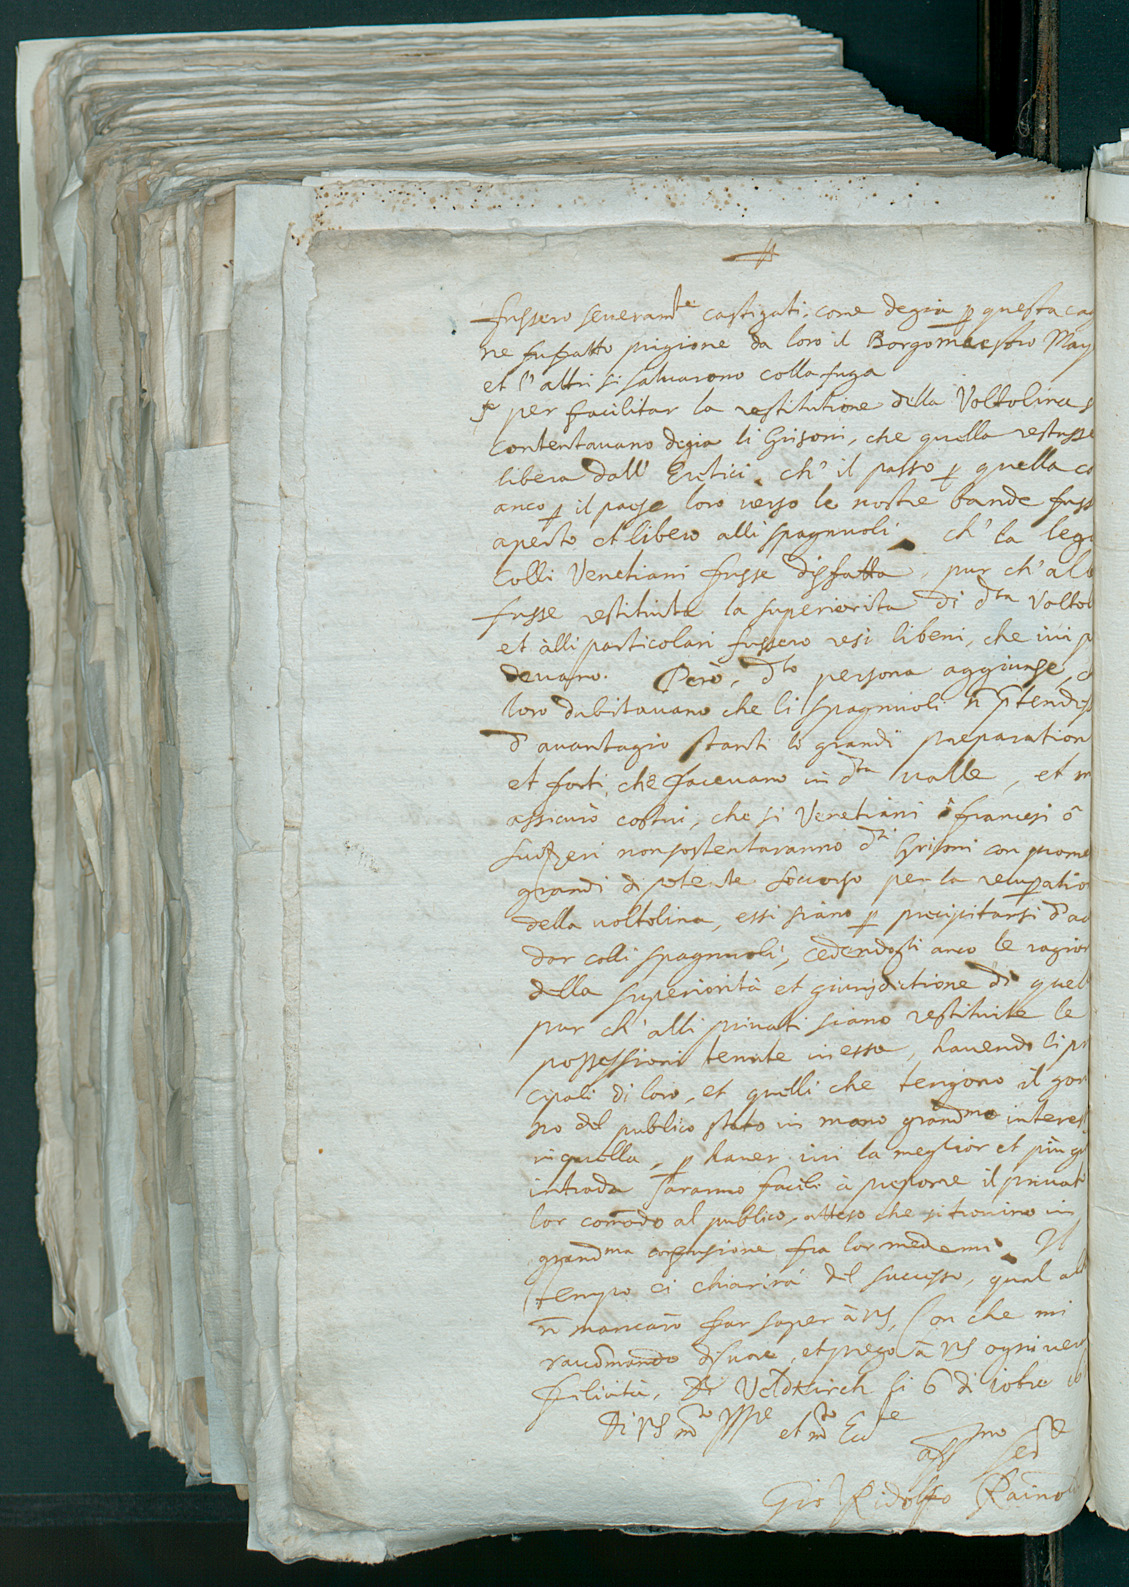 fussero severam.te castigati, come degia p questa cag
ne fu fatto prigione da loro il Borgomaestro May
et l'altri si salvarono colla fuga
per facilitar la restitutione della Voltolina s
contentavano degia li Grisoni, che quella restasse
libera dall' Eretici, ch' il passo p quella co
anco p il paese loro verso le nostre bande fuss
aperto et libero alli spagnuoli, ch' la lega
colli Venetiani fusse disfatta, pur ch' all
fusse restituita la superiorita di d.ta Voltol
et alli particolari fussero resi li beni, che ivi p
devano. Però, d.to persona aggiunse, ch
loro dubitavano che li spagnuoli ñ p̃tendess
d'avantagio stanti le grandi preparation
et forti, che facevano in d.ta valle, et m
assicurò costui, che si Venetiani ò francesi ò
Suizzeri non sostentaranno d.ti Grisoni con prome
grandi di potente soccorso per la recuperatio
della voltolina, essi siano p precipitarsi d'ac
dar colli spagnuoli, cedendogli anco le ragion
della superiorità et giurisdictione di quel
pur ch' alli privati siano restituite le
possessioni tenute in essa, havendo li pr
cipali di loro, et quelli che tengono il gov
no del publico stato in mano grand.mo interes
in quella, p haver ivi la meglior et più gr
intrada saranno facili à preporre il privat
lor com̃odo al publico, atteso che si trovino in
grand.ma confusione fra lor medemi. Il
tempo ci chiarirà del successo, qual all
ñ mancarò far saper à VS, Con che mi
raccõmando di vore, et prego à VS ogni vera
felicità, Di Veldkirch li 6 di xobre 16
Di VS m.to Ill.re et m.to Ecc.te
aff.mo ser.re
Gio Ridolfo Rainol